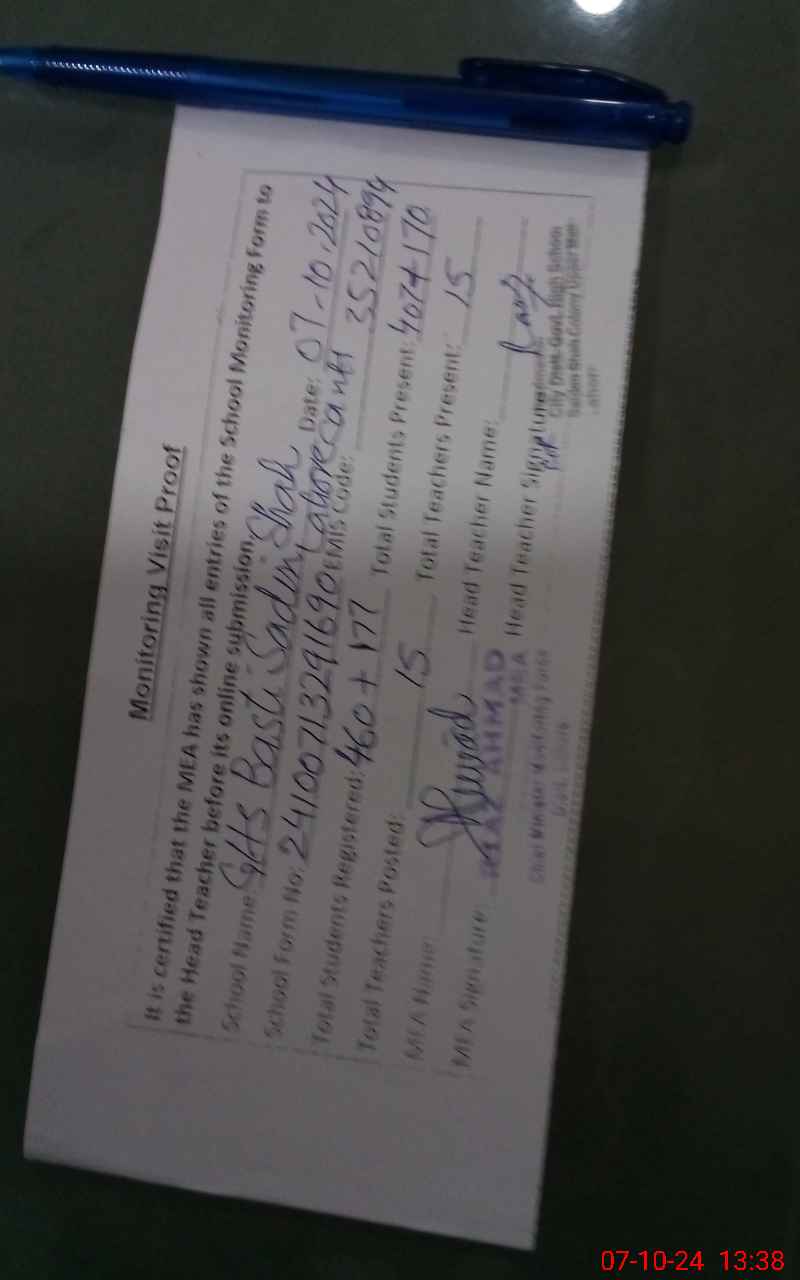 Monitoring Visit Proof
It is certified that the MEA has shown all entries of the School Monitoring Form to
the Head Teacher before its online submission.
School Name: GHS Basti Saden Shah Date: 07-10-2024
Lahore Cantt
School Form No: 24100713291690 EMIS Code: 35210894
Total Students Registered: 460+177 Total Students Present: 407+170
Total Teachers Posted: 15 Total Teachers Present: 15
MEA Name: Head Teacher Name:
MEA Signature: Head Teacher Signature:
AHMAD
MEA
Chief Minister Monitoring Force
City Distt. Govt. High School
Saden Shah Colony Upper Mall
07-10-24 13:38